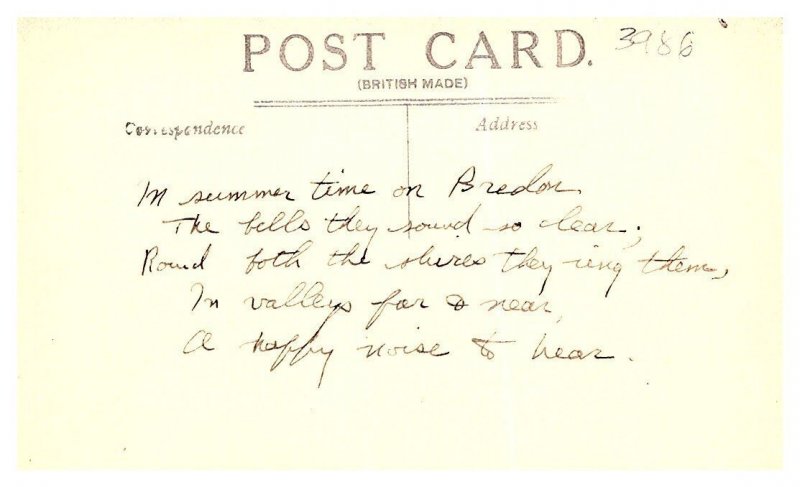 POST CARD. 3986
(BRITISH MADE)
Correspondence
Address
In summer time on Bredon
The bells they sound so clear;
Round both the shires they ring them,
In valleys far & near,
A happy noise to hear.